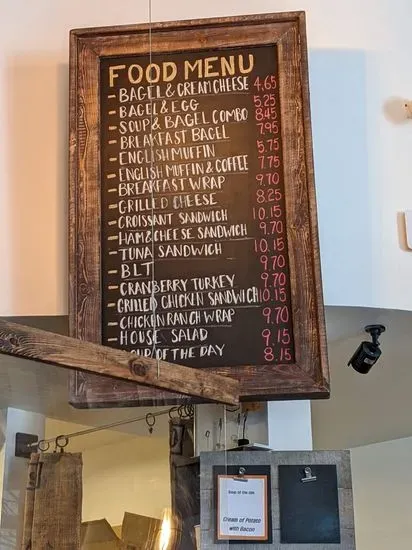 FOOD MENU
- BAGEL & CREAM CHEESE 4.65
- BAGEL & EGG 5.25
- SOUP & BAGEL COMBO 8.45
- BREAKFAST BAGEL 7.95
- ENGLISH MUFFIN 5.75
- ENGLISH MUFFIN & COFFEE 7.75
- BREAKFAST WRAP 9.70
- GRILLED CHEESE 8.25
- CROISSANT SANDWICH 10.15
- HAM & CHEESE SANDWICH 9.70
- TUNA SANDWICH 10.15
- BLT 9.70
- CRANBERRY TURKEY 9.70
- GRILLED CHICKEN SANDWICH 10.15
- CHICKEN RANCH WRAP 9.70
- HOUSE SALAD 9.15
SOUP OF THE DAY 8.15
Soup of the day
Cream of Potato
with Bacon